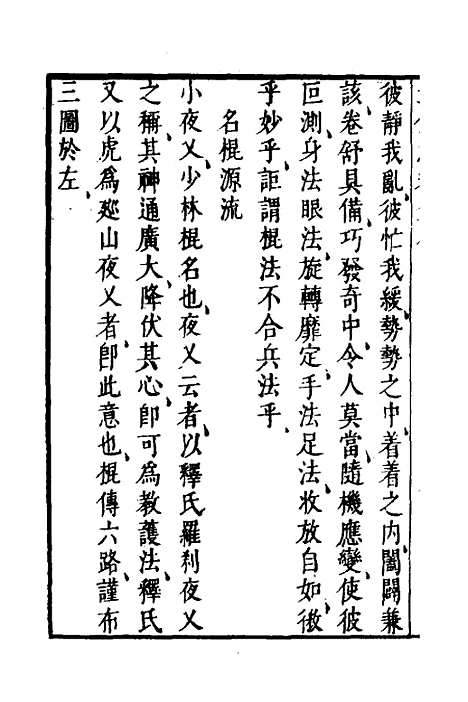 彼靜我亂彼忙我緩勢勢之中着着之內闔闢兼
該卷舒具備巧發奇中令人莫當隨機應變使彼
叵測身法眼法旋轉靡定手法足法收放自如微
乎妙乎詎謂棍法不合兵法乎
名棍源流
小夜乂少林棍名也夜乂云者以釋氏羅刹夜乂
之稱其神通廣大降伏其心卽可爲教護法釋氏
又以虎爲廵山夜乂者卽此意也棍傳六路謹布
三圖於左